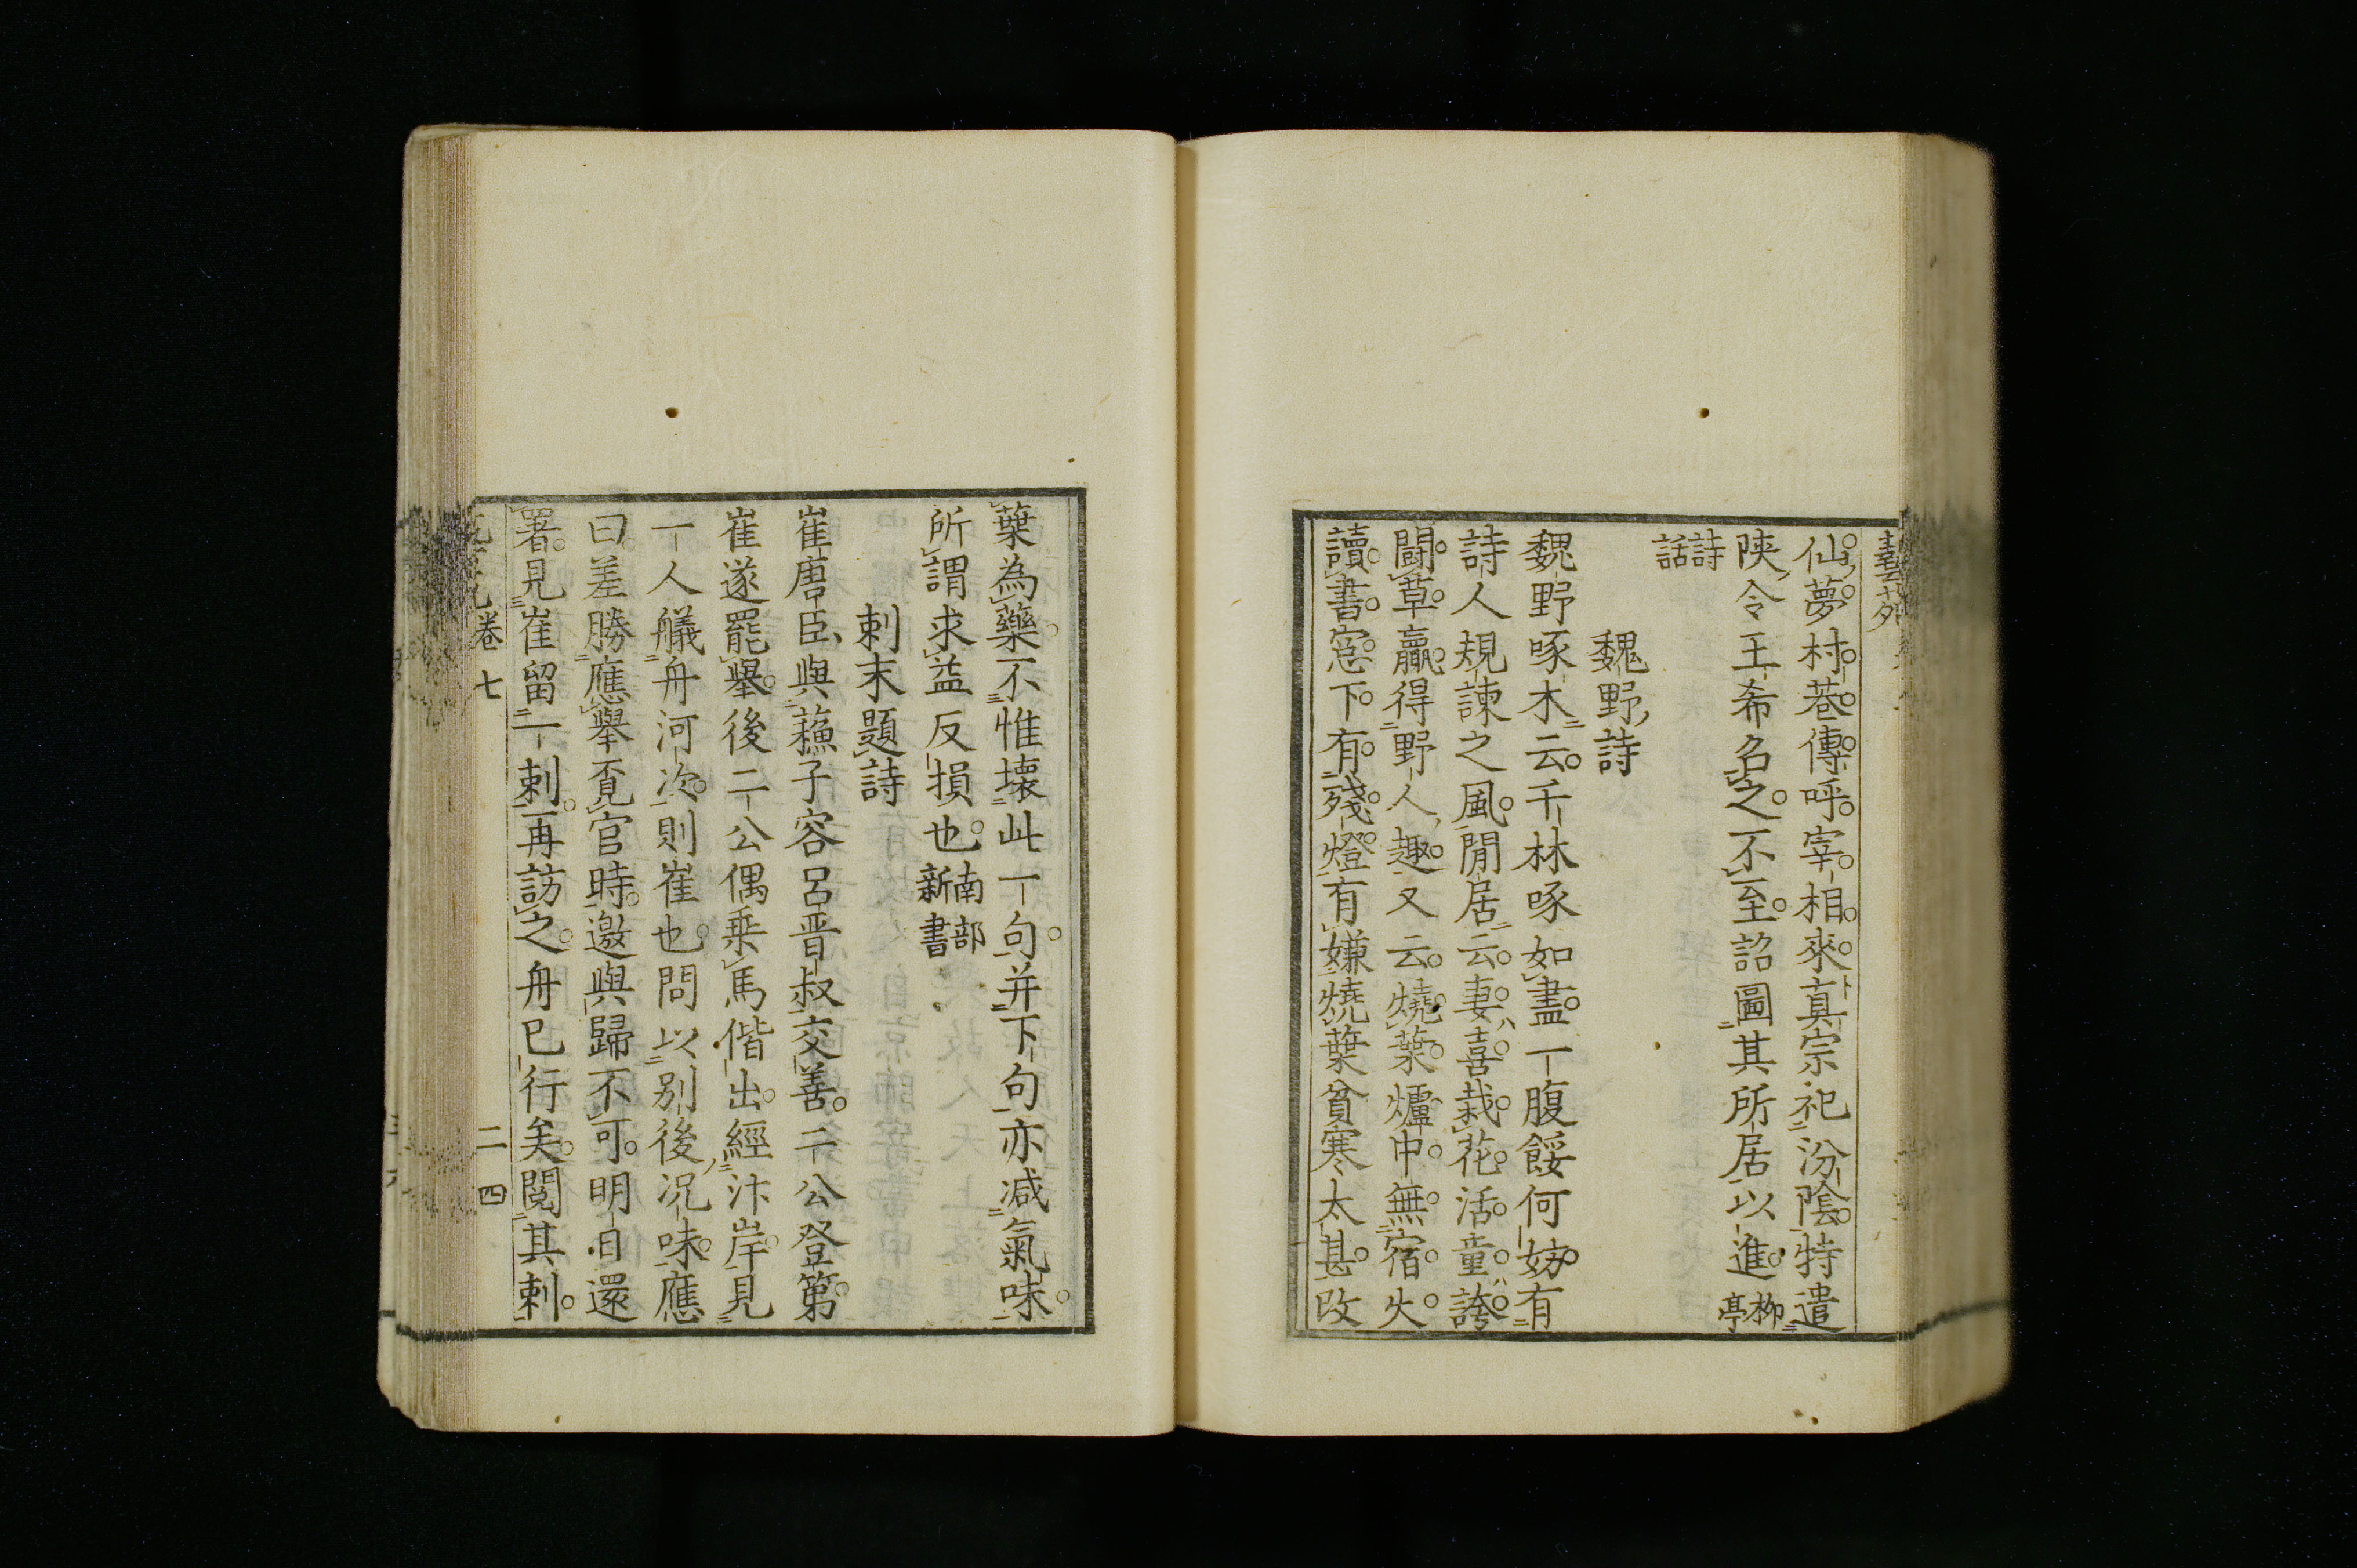 仙夢村巷傳呼宰相來真宗祀汾陰特遣
陝令王希名之不至詔圖其所居以進柳亭
詩話
魏野詩
魏野啄木云千林啄如盡一腹餒何妨有
詩人規諫之風閒居云妻喜栽花活童誇
鬪草贏得野人趣又云燒葉爐中無宿火
讀書窓下有殘燈有嫌燒葉貧寒太甚改
葉為藥不惟壞此一句并下句亦减氣味
所謂求益反損也南部新書
刺末題詩
崔唐臣與蘓子容呂晋叔交善二公登第
崔遂罷舉後二公偶乗馬偕出經汴岸見
一人艤舟河次則崔也問以別後况味應
曰差勝應舉覓官時邀與歸不可明日還
署見崔留一刺再訪之舟已行矣閱其刺
卷七
二四